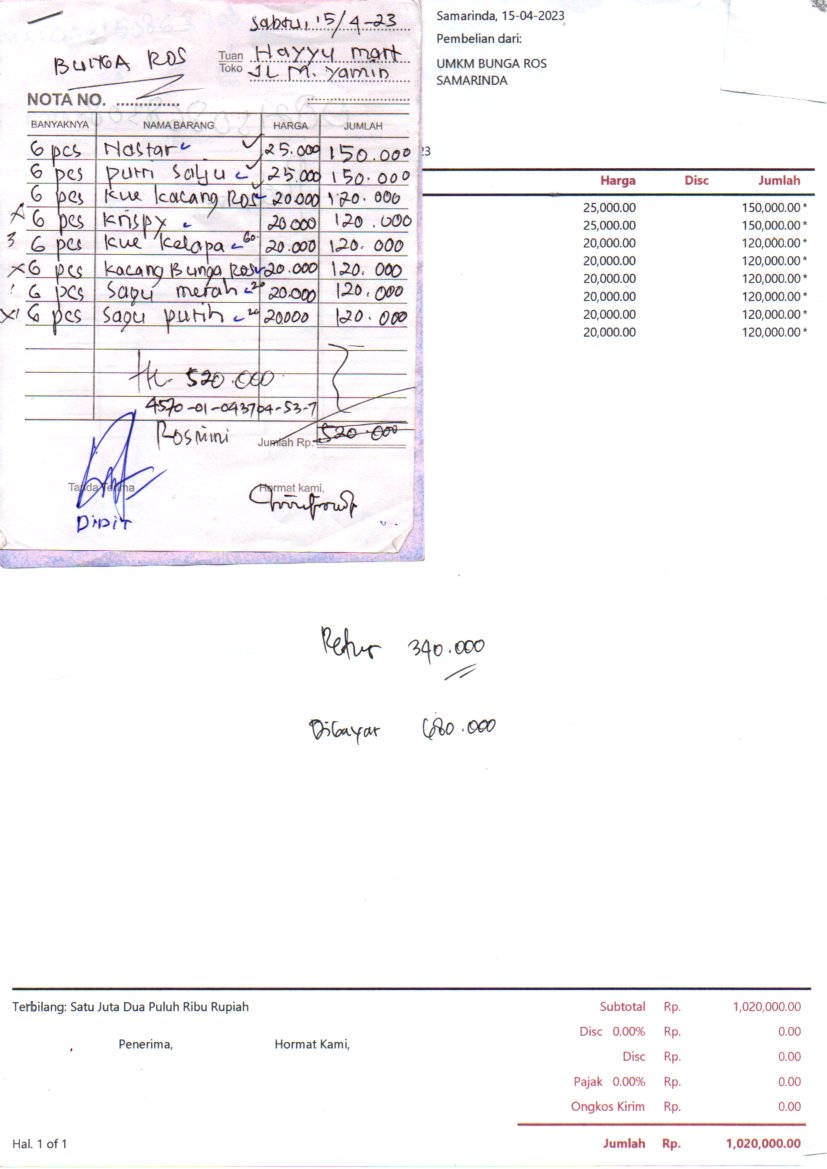 Sabtu, 15/4-23
BUNGA ROS
Tuan Toko Hayyu mart
JL M. Yamin
NOTA NO. ............
BANYAKNYA NAMA BARANG HARGA JUMLAH
6 pcs Nastar 25.000 150.000
6 pcs putri salju 25.000 150.000
6 pcs kue kacang Ros 20.000 120.000
6 pcs krispy 20.000 120.000
3 6 pcs kue kelapa 60 20.000 120.000
X 6 pcs kacang Bunga Ros 20.000 120.000
1 6 pcs sagu merah 20 20.000 120.000
X1 6 pcs sagu putih 20 20000 120.000
520.000
4570-01-043704-53-7
Rosmini
Jumlah Rp. 520.000
Tanda Terima Hormat kami,
DIDIT
Samarinda, 15-04-2023
Pembelian dari:
UMKM BUNGA ROS
SAMARINDA
23
Harga Disc Jumlah
25,000.00 150,000.00*
25,000.00 150,000.00*
20,000.00 120,000.00*
20,000.00 120,000.00*
20,000.00 120,000.00*
20,000.00 120,000.00*
20,000.00 120,000.00*
20,000.00 120,000.00*
Retur 340.000
Dibayar 680.000
Terbilang: Satu Juta Dua Puluh Ribu Rupiah
Penerima, Hormat Kami,
Subtotal Rp. 1,020,000.00
Disc 0.00% Rp. 0.00
Disc Rp. 0.00
Pajak 0.00% Rp. 0.00
Ongkos Kirim Rp. 0.00
Hal. 1 of 1
Jumlah Rp. 1,020,000.00